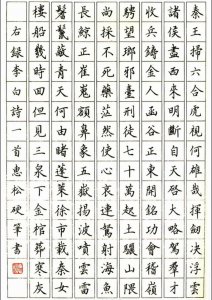 秦王掃六合虎視何雄哉揮劍決浮雲
諸侯盡西來明斷自天啟大略駕群才
收兵鑄金人函谷正東開銘功會稽嶺
騁望瑯邪臺刑徒七十萬起土驪山隈
尚採不死藥茫然使心哀連弩射海魚
長鯨正崔嵬額鼻象五嶽揚波噴雲雷
鬐鬣蔽青天何由睹蓬萊徐市載秦女
樓船幾時回但見三泉下金棺葬寒灰
右錄李白詩一首惠松硬筆書